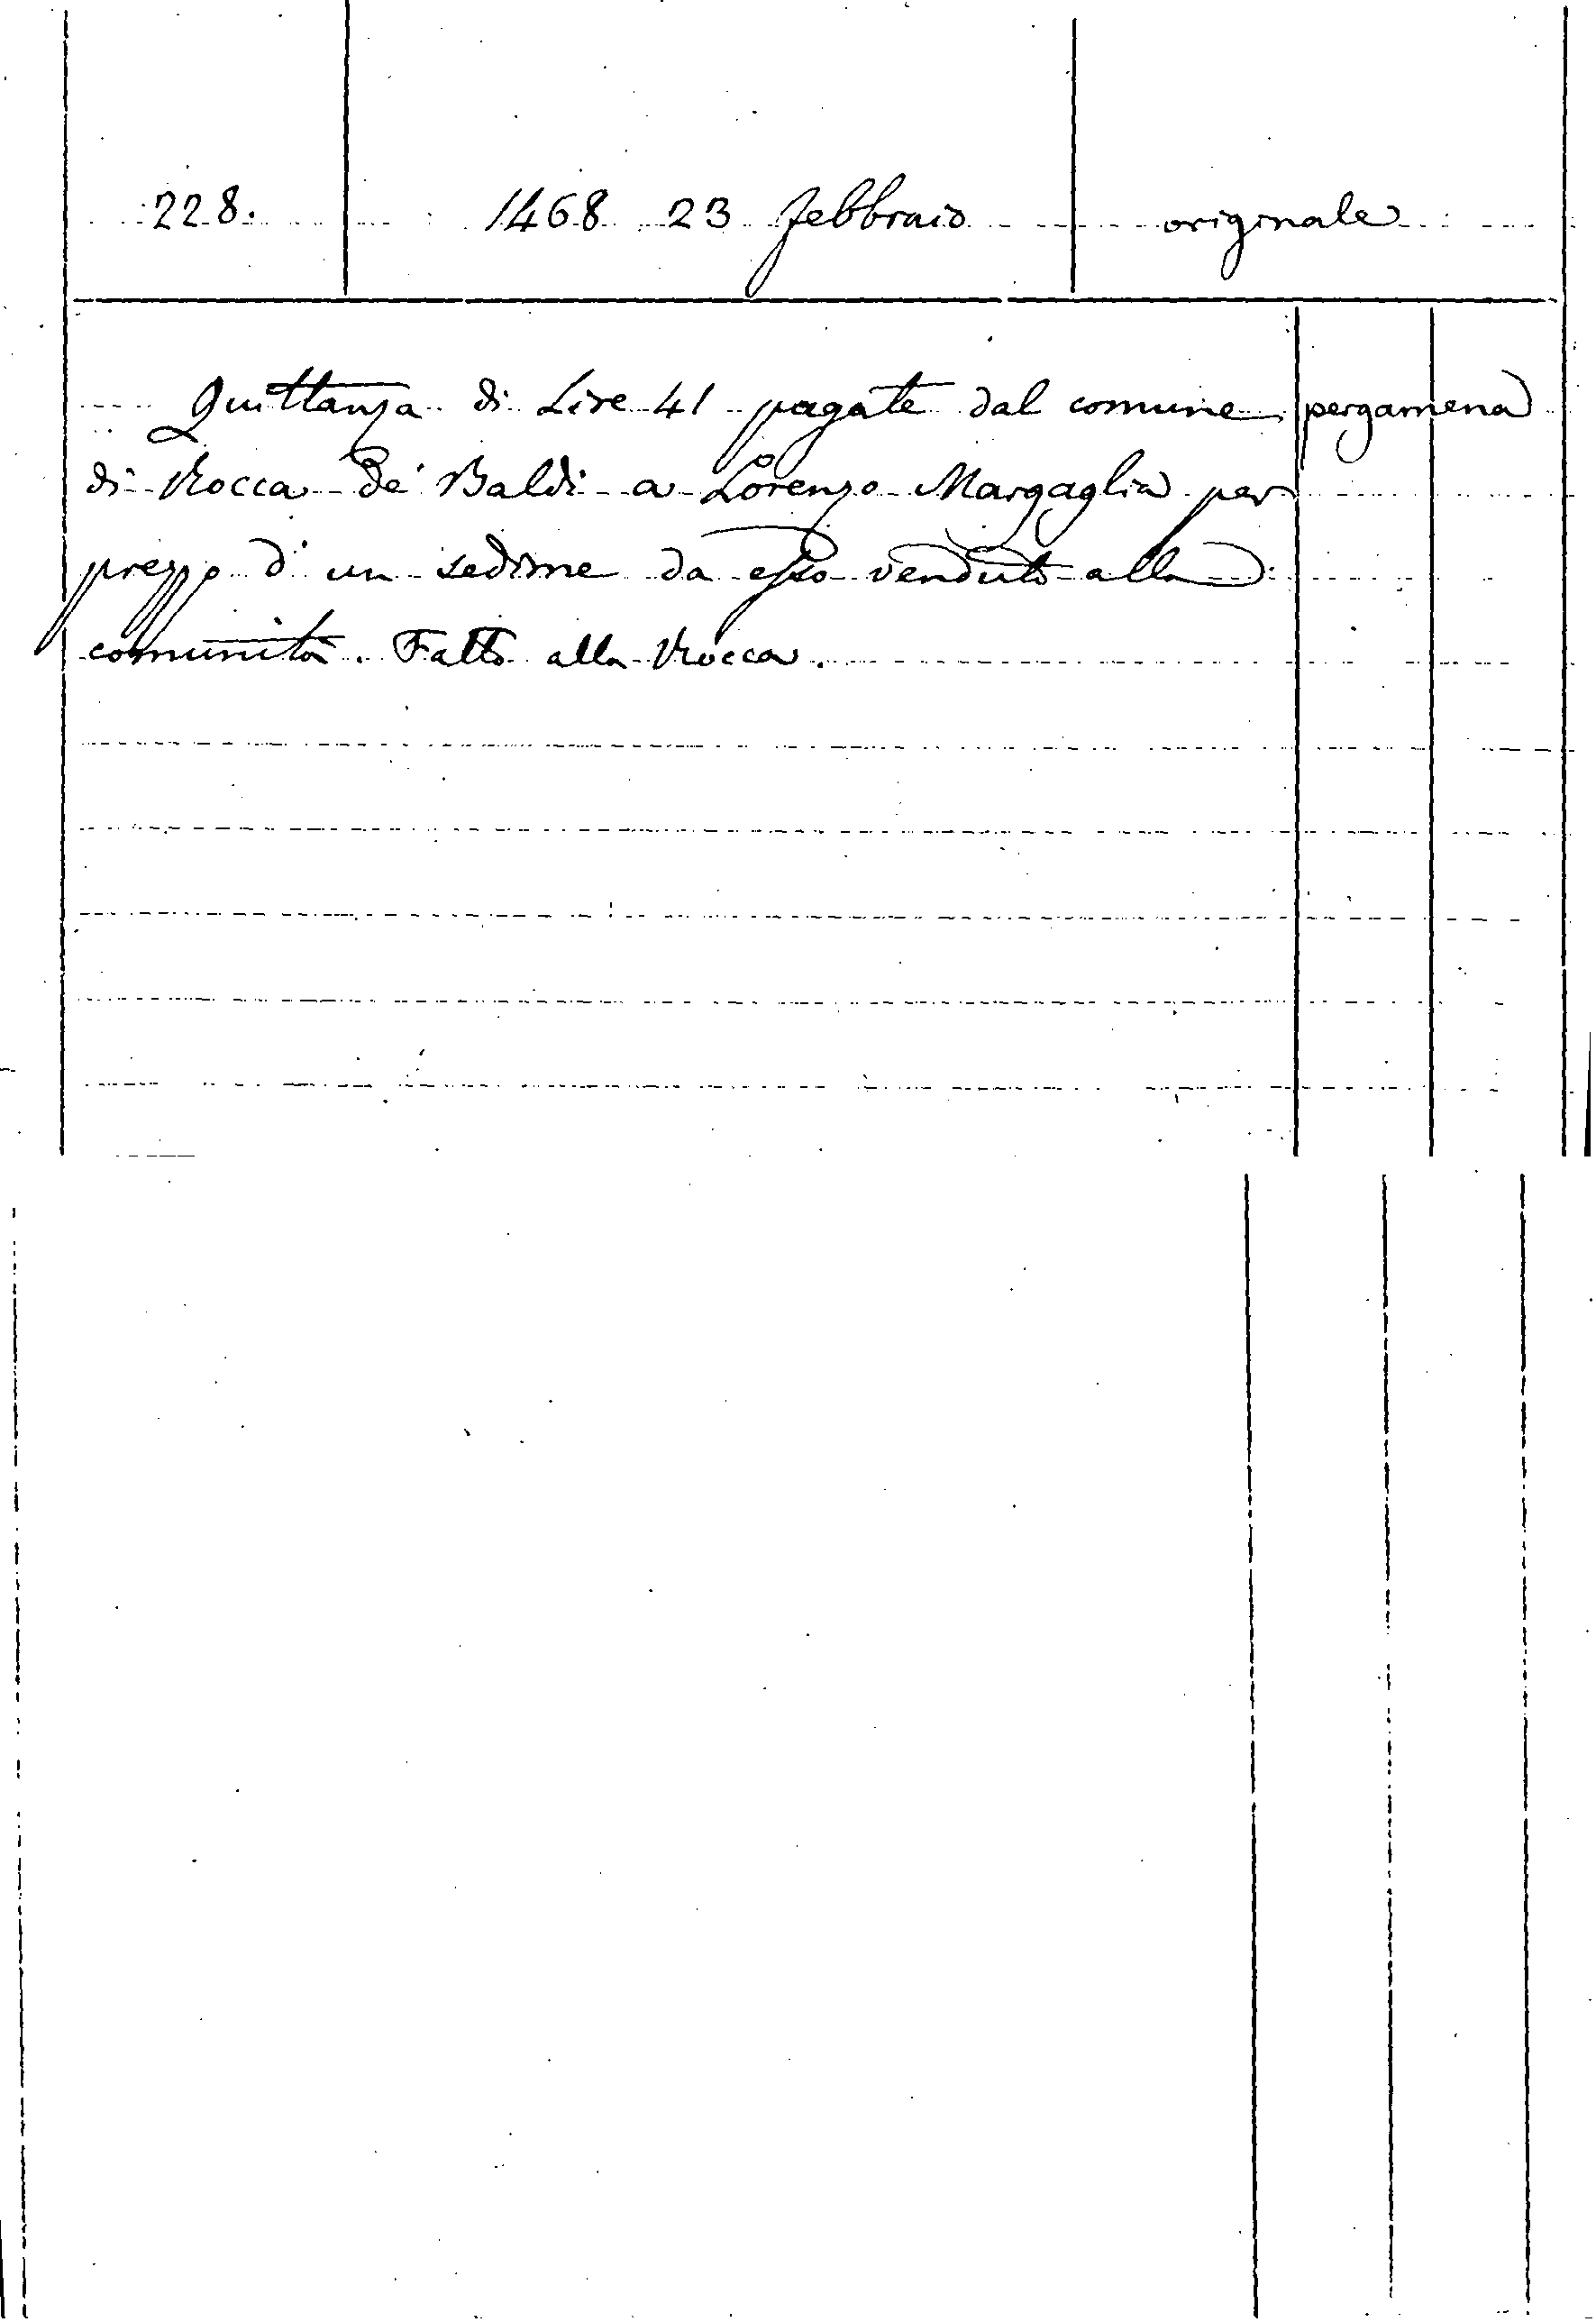 228. 1468 23 febbraio originale
Quittanza di Lire 41 pagate dal comune pergamena
di Rocca de' Baldi a Lorenzo Margaglia per
prezzo d'un sedime da esso venduto alla
comunità. Fatto alla Rocca.